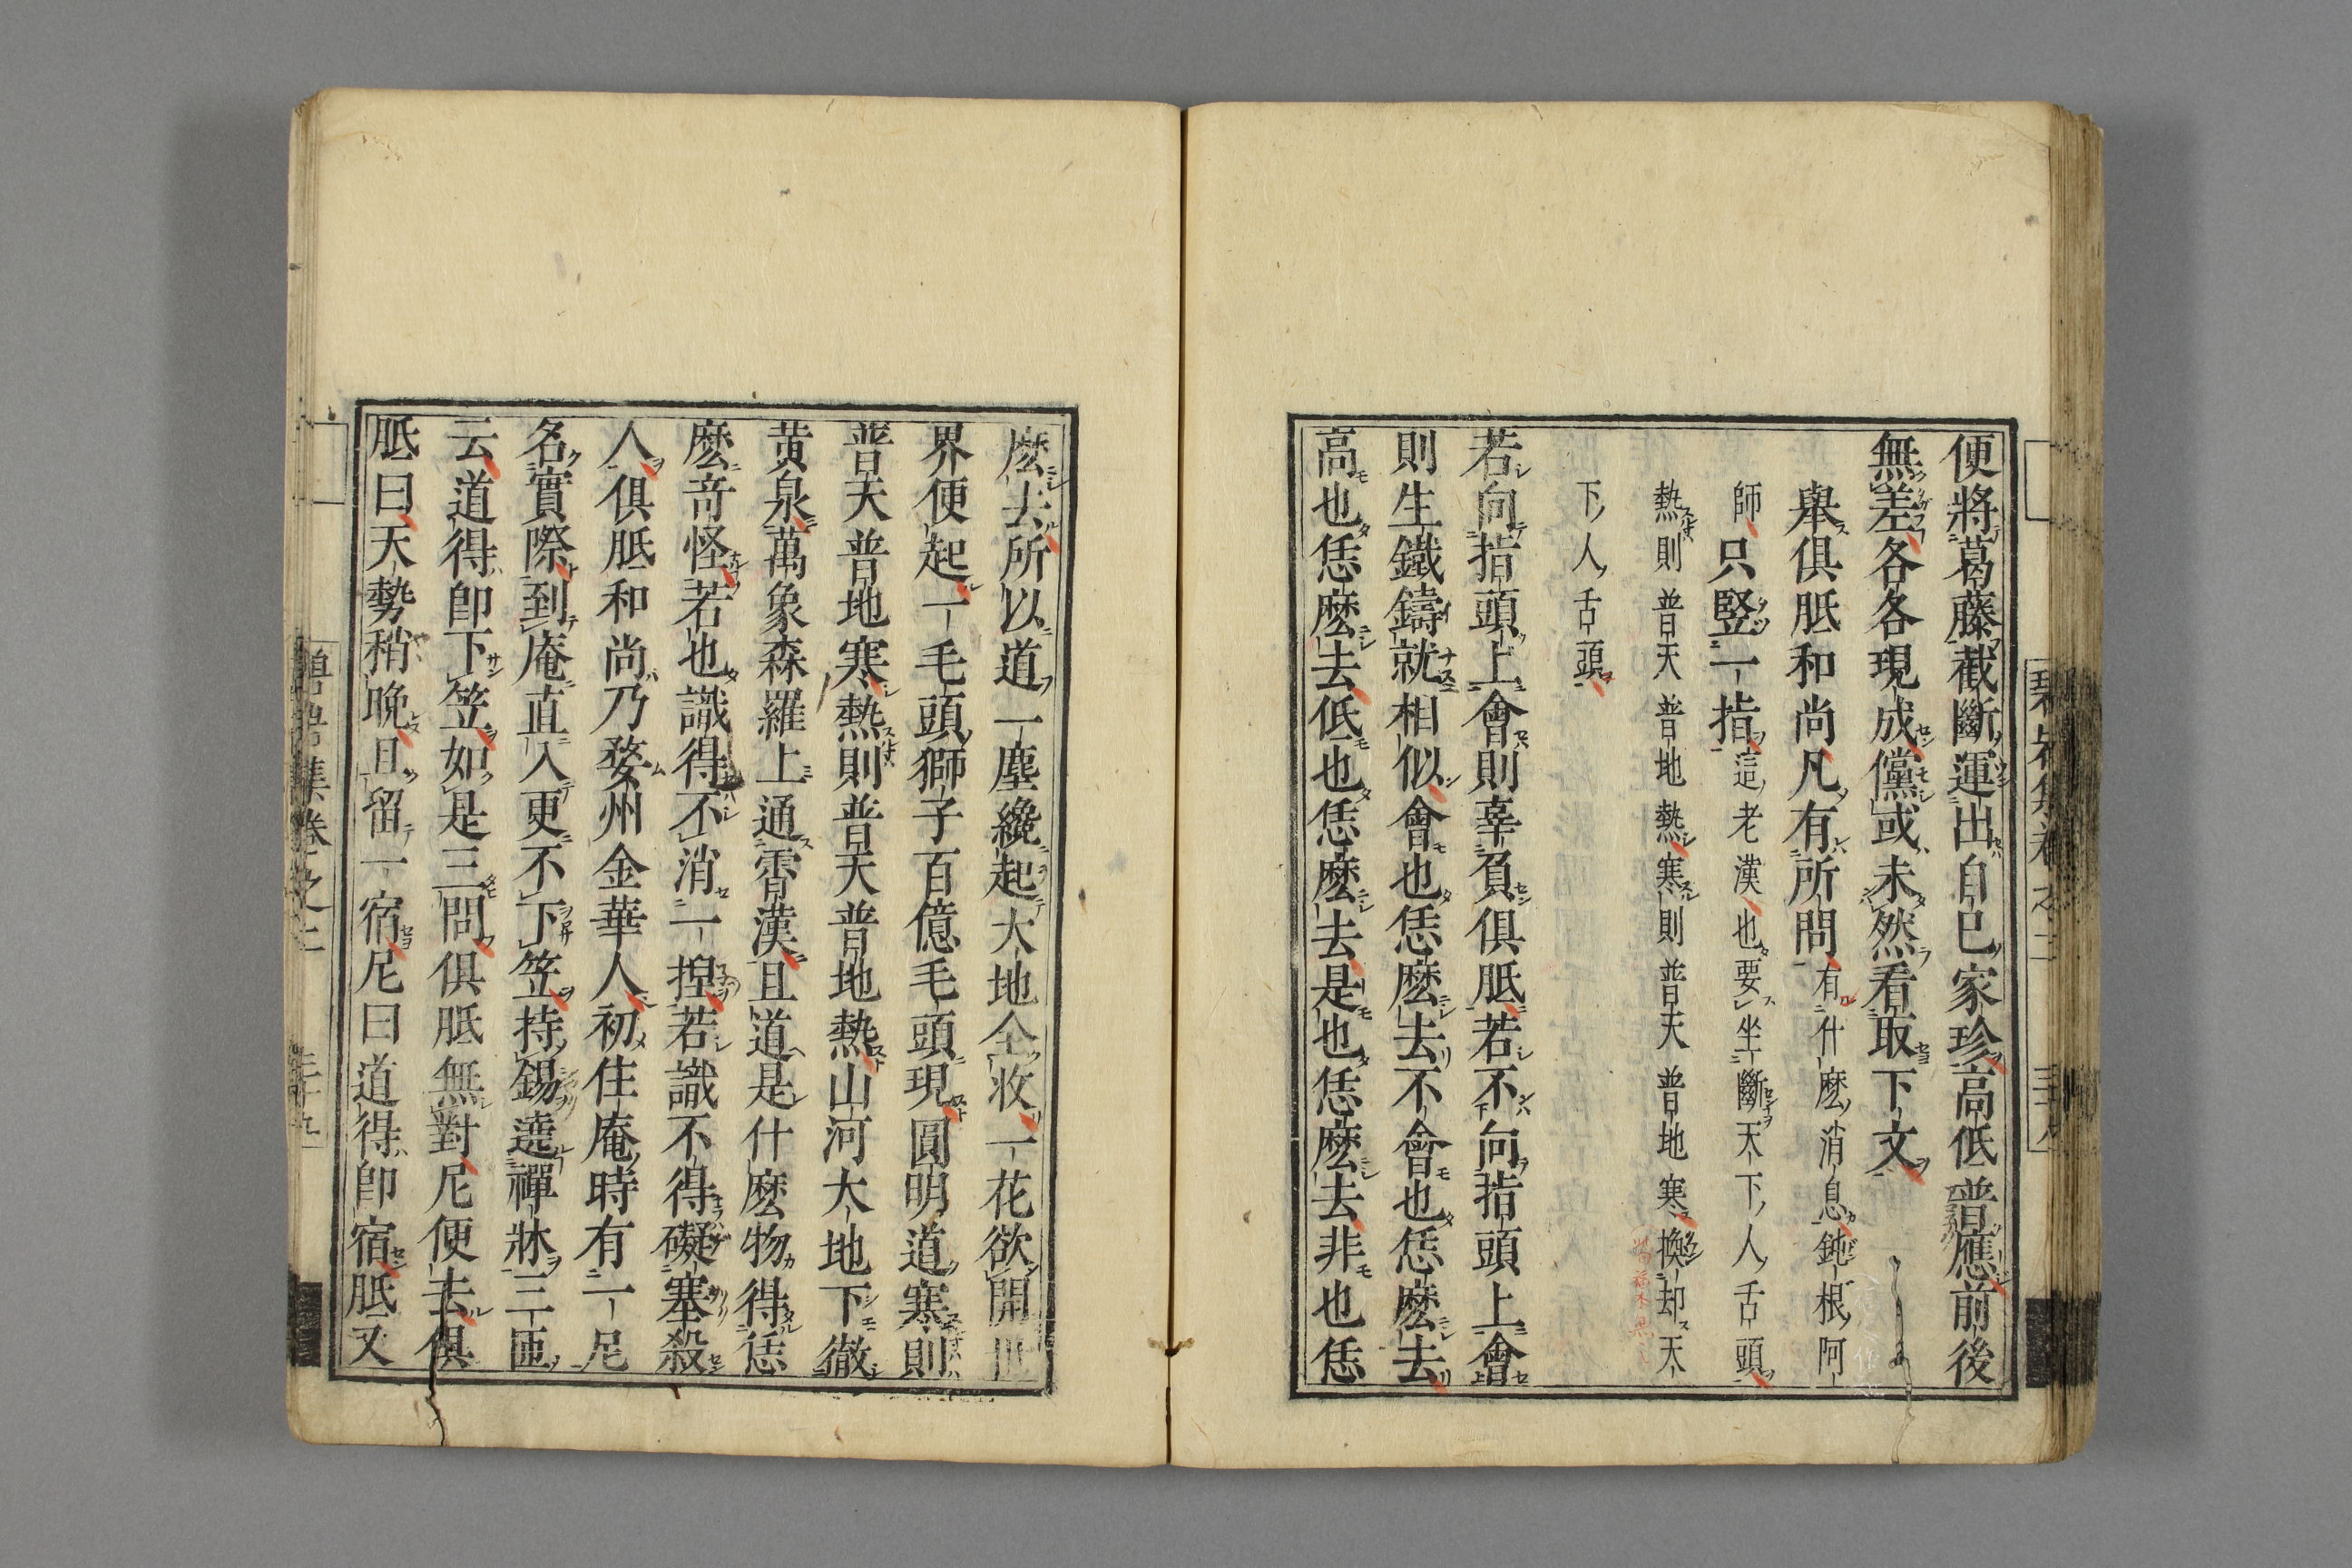 便將葛藤截斷運出自己家珍高低普應前後
無差各各現成儻或未然看取下文
舉俱胝和尚凡有所問有什麼消息鈍根阿
師只竪一指這老漢也要坐斷天下人舌頭
熱則普天普地熱寒則普天普地寒換却天
下人舌頭
若向指頭上會則辜負俱胝若不向指頭上會
則生鐵鑄就相似會也恁麼去不會也恁麼去
高也恁麼去低也恁麼去是也恁麼去非也恁
麼去所以道一塵纔起大地全收一花欲開世
界便起一毛頭獅子百億毛頭現圓明道寒則
普天普地寒熱則普天普地熱山河大地下徹
黄泉萬象森羅上通霄漢且道是什麼物得恁
麼竒怪若也識得不消一捏若識不得礙塞殺
人俱胝和尚乃婺州金華人初住庵時有一尼
名實際到庵直入更不下笠持錫遶禪牀三匝
云道得即下笠如是三問俱胝無對尼便去俱
胝曰天勢稍晩且留一宿尼曰道得即宿胝又
碧岩集卷之二